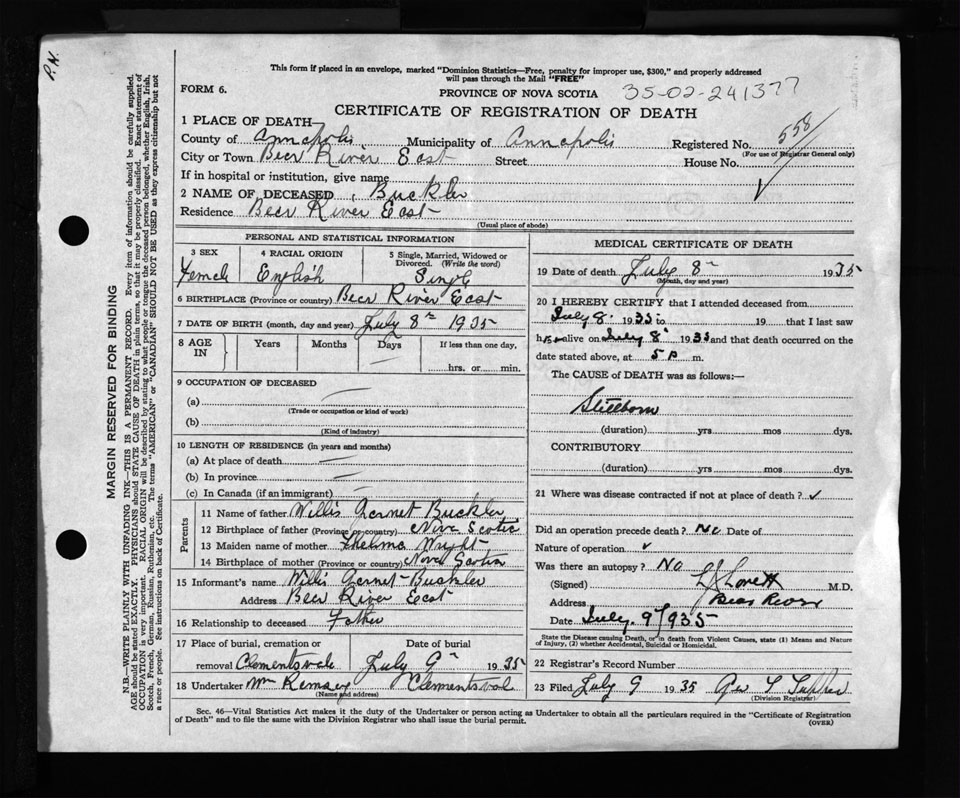 P.N.
This form if placed in an envelope, marked "Dominion Statistics—Free, penalty for improper use, $300," and properly addressed
will pass through the Mail "FREE"
FORM 6.
PROVINCE OF NOVA SCOTIA
35-02-241377
CERTIFICATE OF REGISTRATION OF DEATH
1 PLACE OF DEATH—
County of Annapolis Municipality of Annapolis Registered No. 558
(For use of Registrar General only)
City or Town Bear River East Street House No.
If in hospital or institution, give name
2 NAME OF DECEASED Buckler
Residence Bear River East
(Usual place of abode)
PERSONAL AND STATISTICAL INFORMATION
3 SEX
4 RACIAL ORIGIN
5 Single, Married, Widowed or
Divorced. (Write the word)
Female English Single
6 BIRTHPLACE (Province or country) Bear River East
7 DATE OF BIRTH (month, day and year) July 8th 1935
8 AGE
IN
Years Months Days If less than one day,
hrs. or min.
9 OCCUPATION OF DECEASED
(a)
(Trade or occupation or kind of work)
(b)
(Kind of industry)
10 LENGTH OF RESIDENCE (in years and months)
(a) At place of death
(b) In province
(c) In Canada (if an immigrant)
Parents
11 Name of father Willis Gernet Buckler
12 Birthplace of father (Province or country) Nova Scotia
13 Maiden name of mother Thelma Wright
14 Birthplace of mother (Province or country) Nova Scotia
15 Informant's name Willis Gernet Buckler
Address Bear River East
16 Relationship to deceased Father
17 Place of burial, cremation or Date of burial
removal Clementsvale July 9th 1935
18 Undertaker Wm Ramsey Clementsval
(Name and address)
MEDICAL CERTIFICATE OF DEATH
19 Date of death July 8th 1935
(Month, day and year)
20 I HEREBY CERTIFY that I attended deceased from
July 8 1935 to 19 that I last saw
h alive on July 8 1935 and that death occurred on the
date stated above, at 5 p m.
The CAUSE OF DEATH was as follows:—
Stillborn
(duration) yrs mos dys.
CONTRIBUTORY
(duration) yrs mos dys.
21 Where was disease contracted if not at place of death?
Did an operation precede death? No Date of
Nature of operation
Was there an autopsy? No
(Signed) Lovett M.D.
Address Bear River
Date July. 9 1935
State the Disease causing Death, or in death from Violent Causes, state (1) Means and Nature
of Injury, (2) whether Accidental, Suicidal or Homicidal.
22 Registrar's Record Number
23 Filed July 9 1935 Geo T Tupper
(Division Registrar)
Sec. 46—Vital Statistics Act makes it the duty of the Undertaker or person acting as Undertaker to obtain all the particulars required in the "Certificate of Registration
of Death" and to file the same with the Division Registrar who shall issue the burial permit.
(OVER)
MARGIN RESERVED FOR BINDING
N.B.—WRITE PLAINLY WITH UNFADING INK—THIS IS A PERMANENT RECORD. Every item of information should be carefully supplied.
AGE should be stated EXACTLY. PHYSICIANS should STATE CAUSE OF DEATH in plain terms, so that it may be properly classified. Exact statement of
OCCUPATION is very important. RACIAL ORIGIN will be described by stating to what people or tongue the deceased person belonged, whether English, Irish,
Scotch, French, German, Russian, Ruthenian, etc. The terms "AMERICAN" or "CANADIAN" SHOULD NOT BE USED as they express citizenship but not
a race or people. See instructions on back of Certificate.